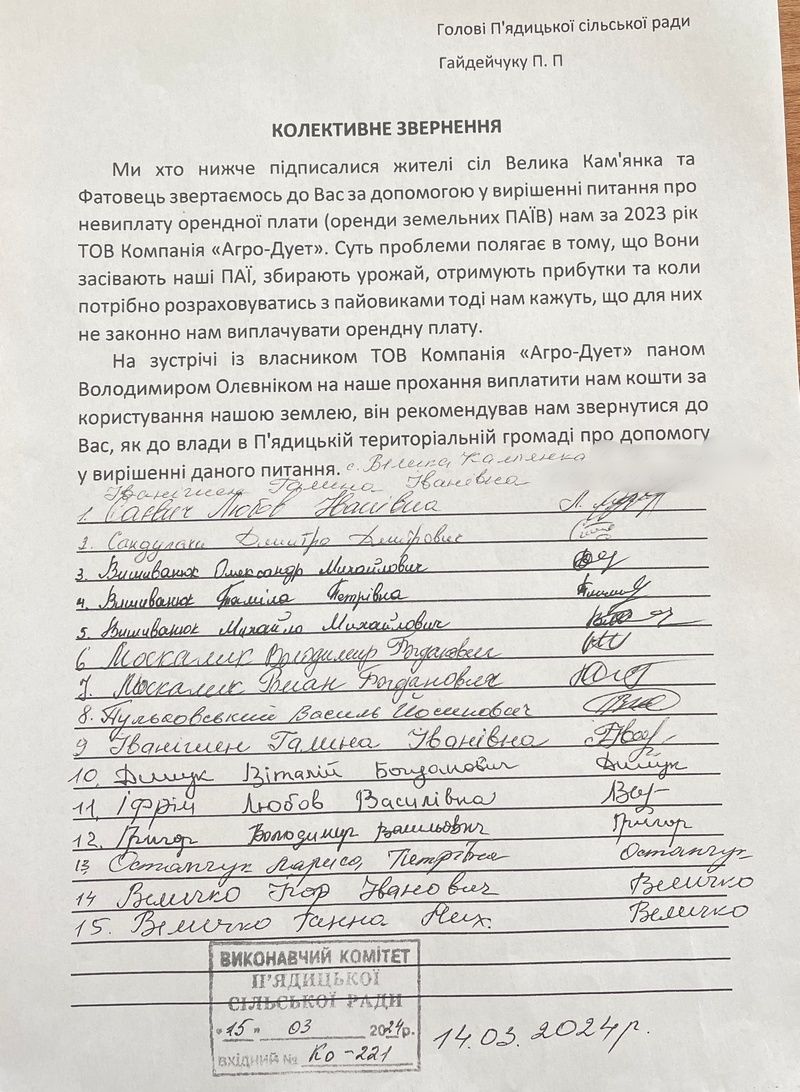 Голові П'ядицької сільської ради
Гайдейчуку П. П
КОЛЕКТИВНЕ ЗВЕРНЕННЯ
Ми хто нижче підписалися жителі сіл Велика Кам'янка та
Фатовець звертаємось до Вас за допомогою у вирішенні питання про
невиплату орендної плати (оренди земельних ПАЇВ) нам за 2023 рік
ТОВ Компанія «Агро-Дует». Суть проблеми полягає в тому, що Вони
засівають наші ПАЇ, збирають урожай, отримують прибутки та коли
потрібно розраховуватись з пайовиками тоді нам кажуть, що для них
не законно нам виплачувати орендну плату.
На зустрічі із власником ТОВ Компанія «Агро-Дует» паном
Володимиром Олєвніком на наше прохання виплатити нам кошти за
користування нашою землею, він рекомендував нам звернутися до
Вас, як до влади в П'ядицькій територіальній громаді про допомогу
у вирішенні даного питання. с. Велика Кам'янка
Іванішен Галина Іванівна
1. Гаєвич Любов Іванівна
2. Сандуляк Дмитро Дмитрович
3. Вишиванюк Олександр Михайлович
4. Вишиванюк Петрівна
5. Вишиванюк Михайло Михайлович
6 Москалик Володимир Богданович
7. Москалик Богданович
8. Пульковський Василь Йосипович
9 Іванішен Галина Іванівна
10. Димук Віталій Богданович Димук
11. Іфрім Любов Василівна
12. Григор Володимир Васильович Григор
13 Остапчук Лариса Петрівна Остапчук
14 Величко Ігор Іванович Величко
15. Величко Ганна Мих. Величко
ВИКОНАВЧИЙ КОМІТЕТ
П'ЯДИЦЬКОЇ
СІЛЬСЬКОЇ РАДИ
"15" 03 2024р.
ВХІДНИЙ № Ко-221
14.03.2024р.